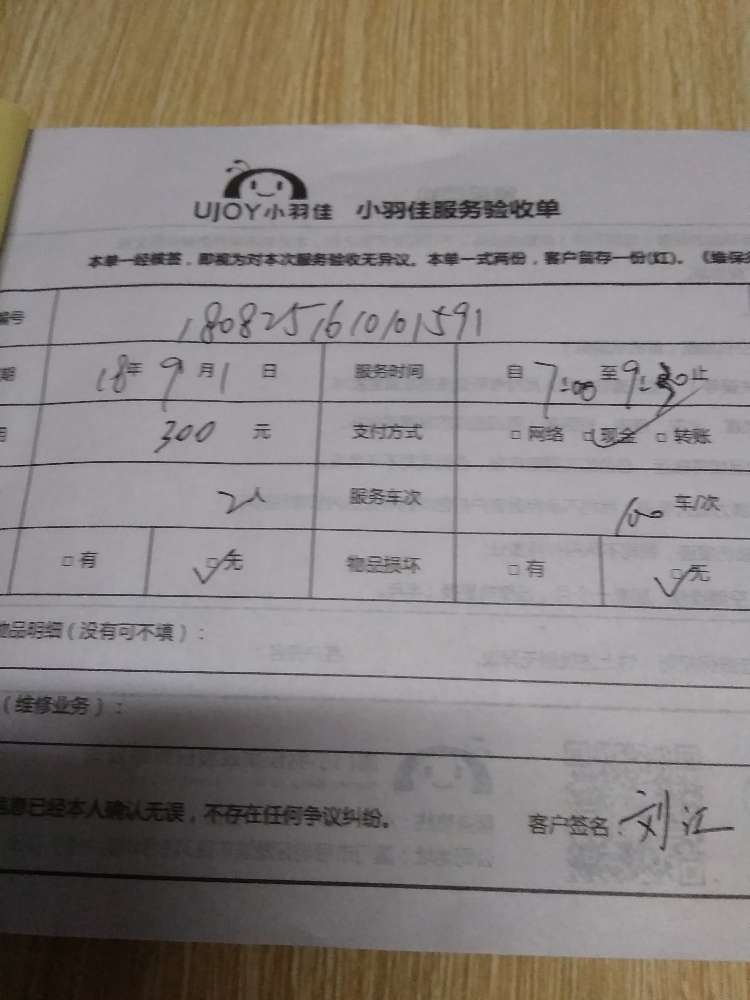 UJOY小羽佳 小羽佳服务验收单
本单一经核签，即视为对本次服务验收无异议。本单一式两份，客户留存一份(红)。《维保
编号 180825161010 1591
期 18年 9月 1日 服务时间 自 7:00 至 9:30 止
用 300 元 支付方式 □ 网络 ☑ 现金 □ 转账
2人 服务车次 100 车/次
□ 有 ☑ 无 物品损坏 □ 有 ☑ 无
物品明细（没有可不填）：
（维修业务）：
信息已经本人确认无误，不存在任何争议纠纷。 客户签名：刘江